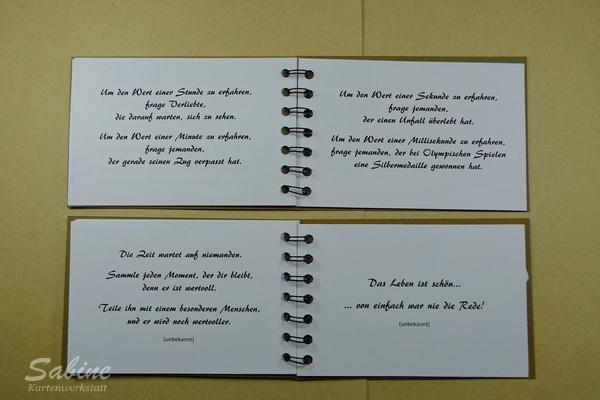 Um den Wert einer Stunde zu erfahren,
frage Verliebte,
die darauf warten, sich zu sehen.
Um den Wert einer Minute zu erfahren,
frage jemanden,
der gerade seinen Zug verpasst hat.
Um den Wert einer Sekunde zu erfahren,
frage jemanden,
der einen Unfall überlebt hat.
Um den Wert einer Millisekunde zu erfahren,
frage jemanden, der bei Olympischen Spielen
eine Silbermedaille gewonnen hat.
Die Zeit wartet auf niemanden.
Sammle jeden Moment, der dir bleibt,
denn er ist wertvoll.
Teile ihn mit einem besonderen Menschen,
und er wird noch wertvoller.
(unbekannt)
Das Leben ist schön...
... von einfach war nie die Rede!
(unbekannt)
Sabine
Kartenwerkstatt